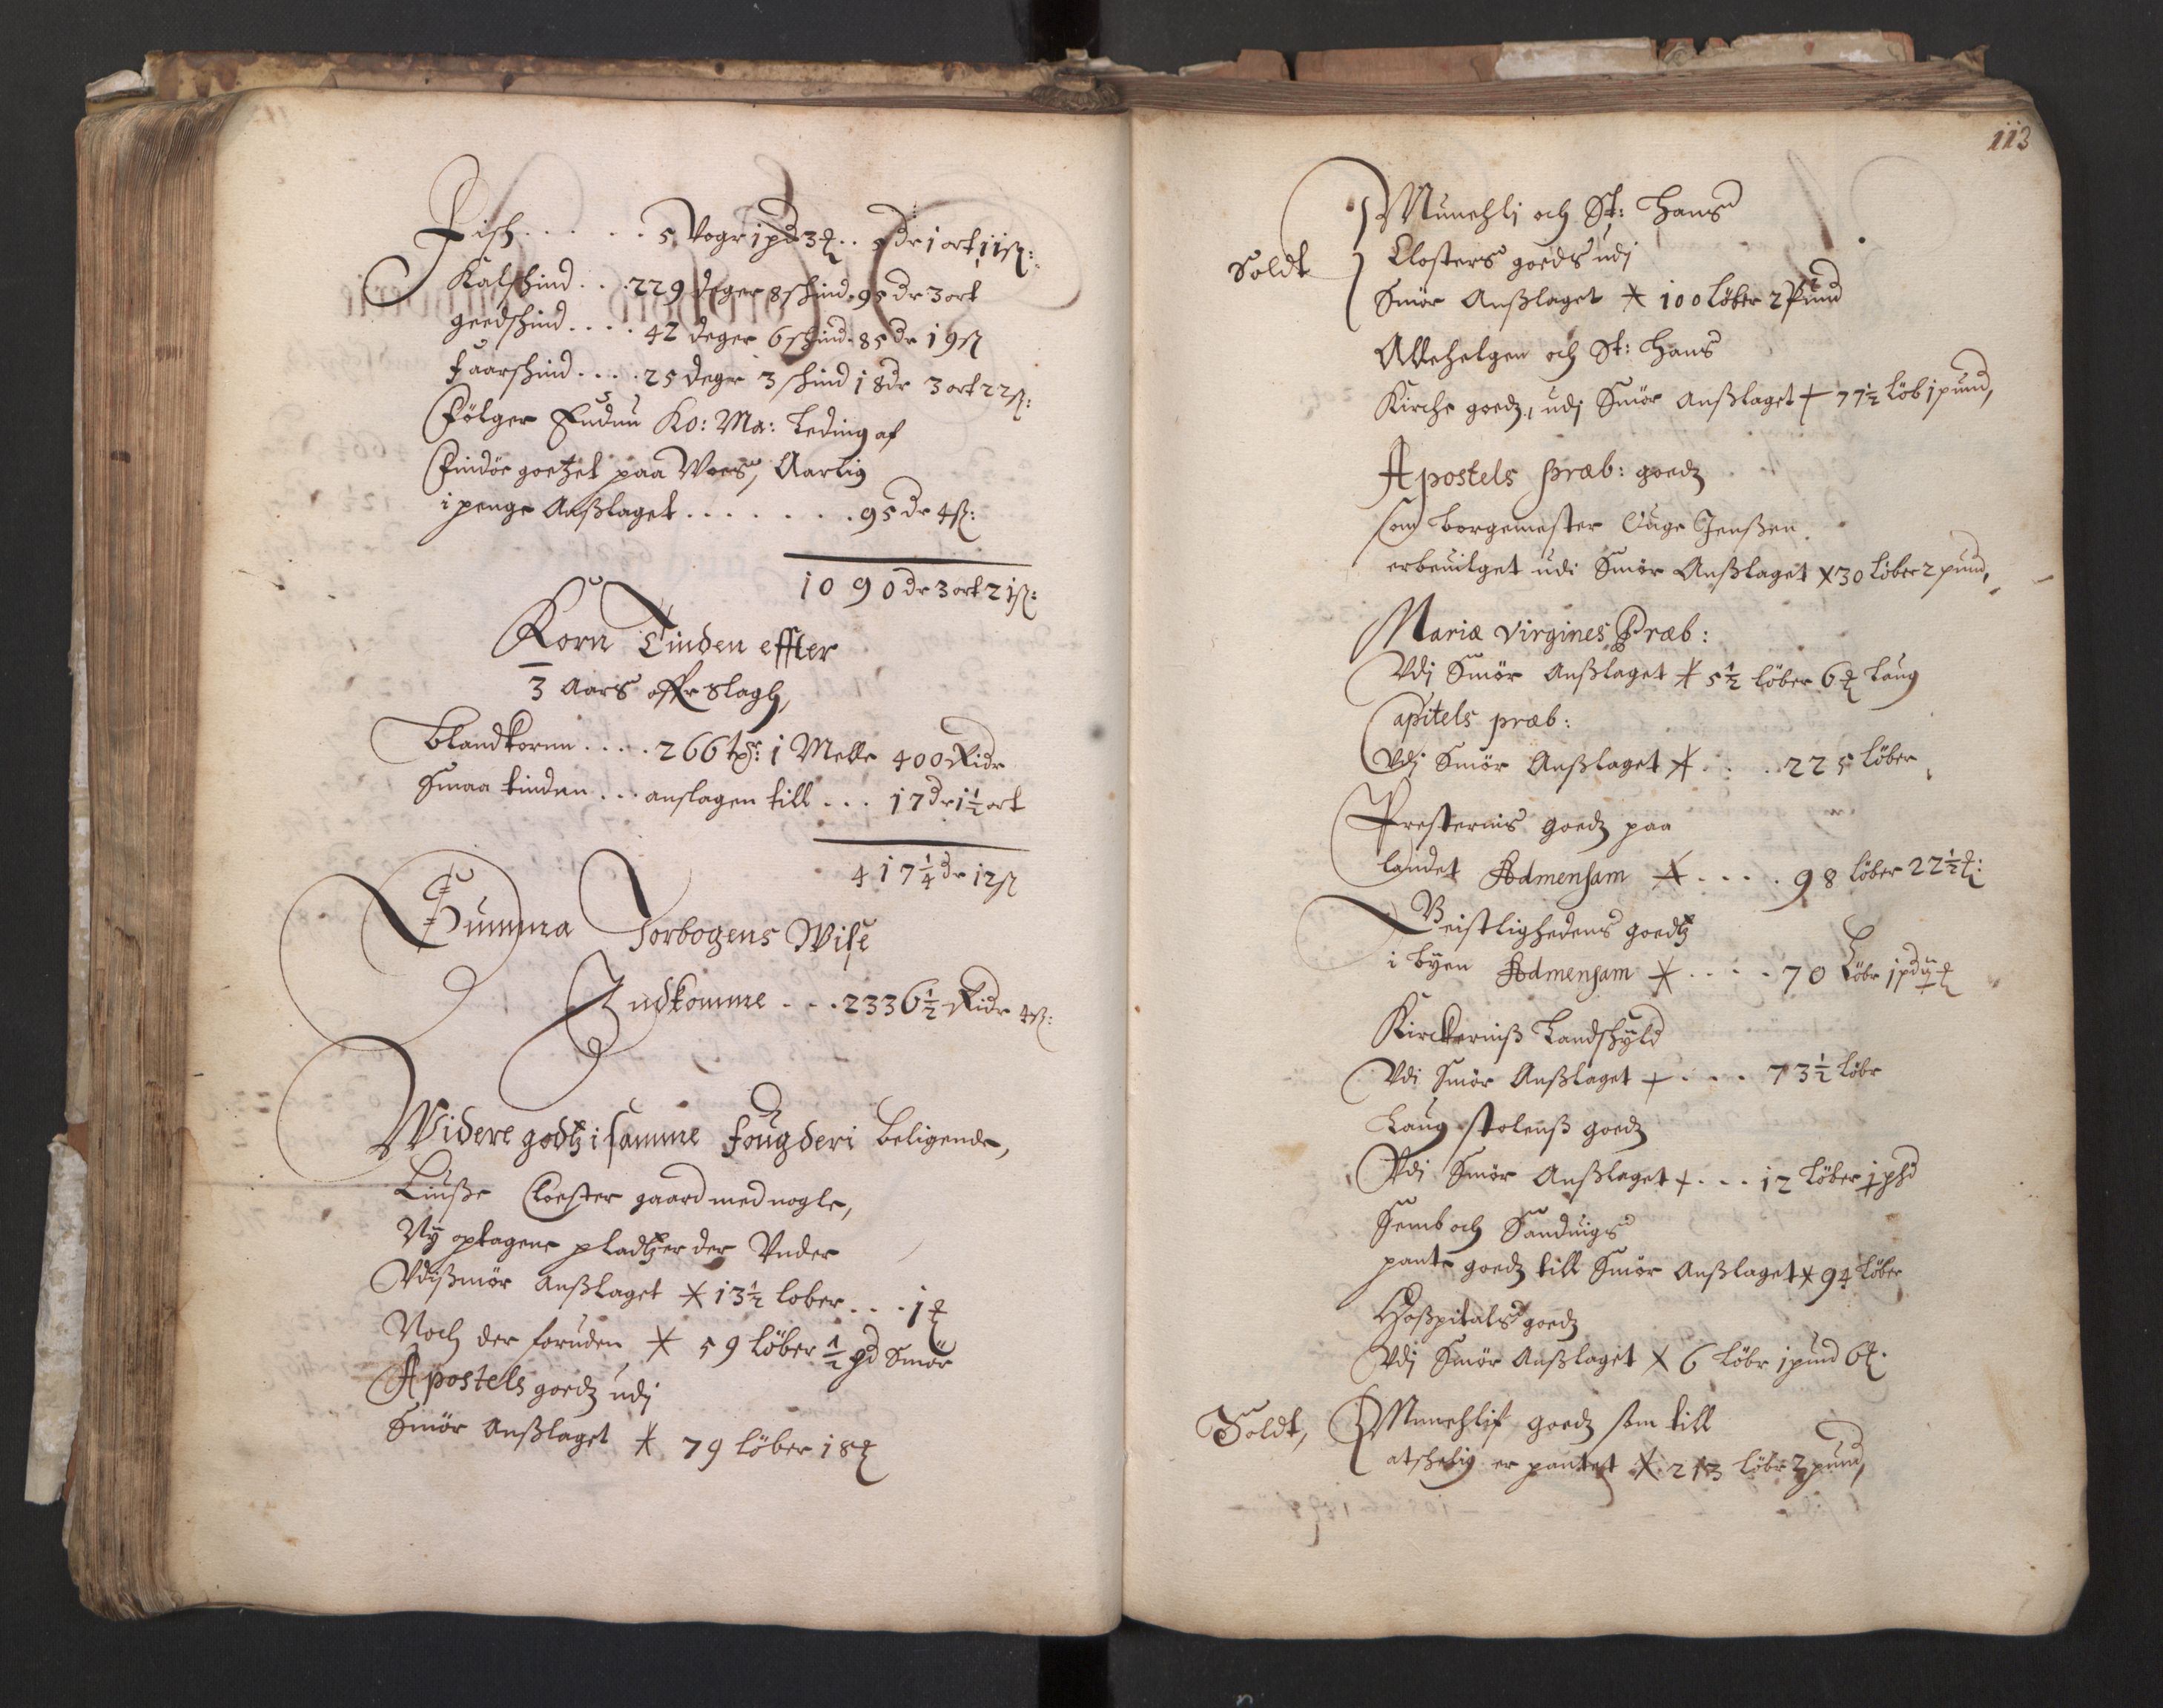 Fisk . . . . . 5 Voger 1 pd 3 ℔ . . 5 dr 1 ort 11 ß:
Kalfskind . . . 229 deger 8 skind . 95 dr 3 ort
geedskind . . . . 42 deger 6 skind . 85 dr 19 ß
Faarskind . . . . 25 deger 3 skind 18 dr 3 ort 22 ß:
Følger Endnu Ko: Ma: Leding af
Findöe goetzet paa Woes, Aarlig
i penge Anßlaget . . . . . . . 95 dr 4 ß:
1090 dr 3 ort 21 ß:
Korn Tinden effter
3 Aars offr slagh,
Blandkornn . . . . 266 tr: 1 Melle 400 Ridr
Smaa tinden . . . anslagen till . . . 17 dr 1½ ort
417¼ dr 12 ß
Summa Jorbogens Wise
Indkomme . . . 2336½ Ridr 4 ß:
Widere godtz i samme fougderi beligende,
Liuße Closter gaard med nogle,
Ny optagene pladtzer der Under
Vdi Smör Anßlaget * 13½ löber . . . 1 ℔
Noch der foruden * 59 löber ½ pd Smör
Apostels goedz udj
Smör Anßlaget * 79 löber 18 ℔
113
Munchli och St: Hans
Soldt
Closters goeds udj
Smör Anßlaget * 100 löber 2 Pund
Allehelgen och St: Hans
Kirche goedz, udj Smör Anßlaget + 77½ löb 1 pund,
Apostels præb: goedz
som borgemester Ouge Jenßen
erbeuilget udi Smör Anßlaget * 30 löber 2 pund,
Mariæ Virgines Præb:
Vdj Smör Anßlaget * 5½ löber 6 ℔ Laug
Capitels præb:
Vdj Smör Anßlaget * . . . 225 löber
Presternis goedz paa
landet Admensam * . . . . 98 löber 22½ ℔:
Geistlighedens goedtz
i byen Admensam * . . . . 70 Löbr 1 pd ℔
Kirckerniß Landskyld
Vdi Smör Anßlaget + . . . 73½ löbr
Laug stolenß goedz
Vdi Smör Anßlaget + . . . 12 löber 1 pd
Semb och Sanduigs
pante goedz till Smör Anßlaget * 94 löber
Hoßpitals goedz
Vdj Smör Anßlaget * 6 löbr 1 pund 6 ℔.
Soldt, Munchlif goedz som till
atskelig er pantet * 213 löbr 2 pund,